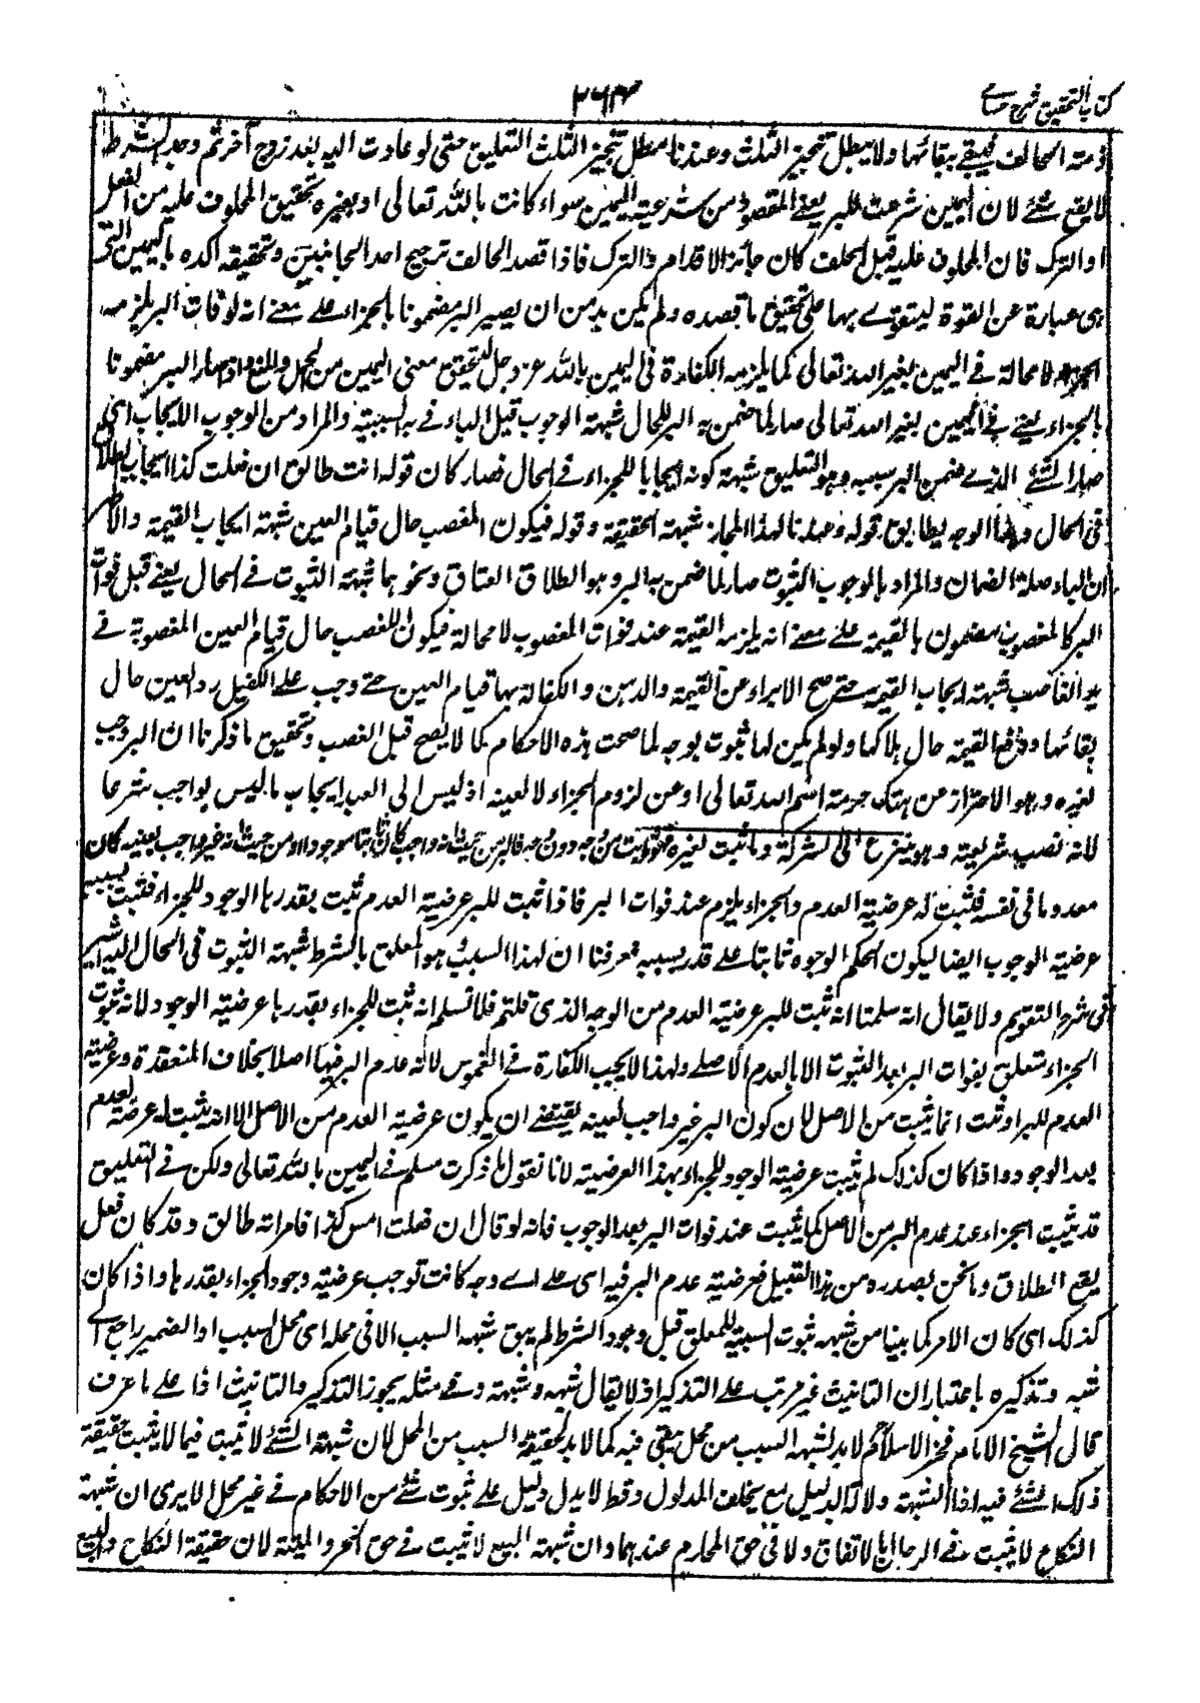 كتاب التحقيق شرح حسامي
٢٦٣
ذمة الحالف فيبقى ببقائها ولا يبطل تنجيز الثلث وعندنا يبطل تنجيز الثلث التعليق حتى لو عادت اليه بعد زوج آخر ثم وجد الشرط
لا يقع شئ لان اليمين شرعت للبر يعنى المقصود من شرعية اليمين سواء كانت بالله تعالى او بغيره تحقيق المحلوف عليه من الفعل
او الترك فان المحلوف عليه قبل الحلف كان جائز الاقدام والترك فاذا قصد الحالف ترجيح احد الجانبين وتحقيقه اكده باليمين التى
هى عبارة عن القوة ليتقوى بها على تحقيق ما قصده ولم يكن بد من ان يصير البر مضمونا بالجزاء على معنى انه لو فات البر يلزمه
الجزاء لا محالة فى اليمين بغير الله تعالى كما يلزمه الكفارة فى اليمين بالله عز وجل لتحقق معنى اليمين من الحمل والمنع واذا صار البر مضمونا
بالجزاء يعنى فى اليمين بغير الله تعالى صار لما ضمن به البر للحال شبهة الوجوب قيل الباء فى به للسببية والمراد من الوجوب الايجاب اى
صار الشئ الذى ضمن البر بسببه وهو التعليق شبهة كونه ايجابا للجزاء فى الحال فصار كان قوله انت طالق ان فعلت كذا ايجاب الطلاق
فى الحال وهذا الوجه يطابق قوله وعندنا لهذا المجاز شبهة الحقيقة وقوله فيكون المغصب حال قيام العين شبهة ايجاب القيمة والاظهر
ان الباء صلة الضمان والمراد بالوجوب الثبوت صار لما ضمن به البر وهو الطلاق العتاق ونحوهما شبهة الثبوت فى الحال يعنى قبل فوات
البر كالمغصوب مضمون بالقيمة على معنى انه يلزمه القيمة عند فوات المغصوب لا محالة فيكون للغصب حال قيام العين المغصوبة فى
يد الغاصب شبهة ايجاب القيمة حتى صح الابراء عن القيمة والرهن والكفالة بها قيام العين حتى وجب على الكفيل رد العين حال
بقائها ودفع القيمة حال هلاكها ولو لم يكن لها ثبوت بوجه لما صحت هذه الاحكام كما لا يصح قبل الغصب وتحقيق ما ذكرنا ان البر وجب
لغيره وهو الاحتراز عن هتك حرمة اسم الله تعالى او عن لزوم الجزاء لا لعينه اذ ليس الى العبد ايجاب ما ليس بواجب شرعا
لانه نصب شريعة وهو ينزع الى الشركة وما ثبت لغيره فهو ثابت من وجه دون وجه فالبر من حيث انه واجب كان ثابتا موجودا ومن حيث انه غير واجب بعينه كان
معدوما فى نفسه فثبت له عرضية العدم والجزاء يلزم عند فوات البر فاذا ثبت للبر عرضية العدم ثبت بقدرها الوجود للجزاء فثبت لسببه
عرضية الوجوب ايضا ليكون الحكم الوجوه ثابتا على قدر سببه فعرفنا ان لهذا السبب وهو المعلق بالشرط شبهة الثبوت فى الحال اليه اشير
فى شرح التقويم ولا يقال انه سلمنا انه ثبت للبر عرضية العدم من الوجه الذى قلتم فلا نسلم انه ثبت للجزاء بقدرها عرضية الوجود لانه ثبوت
الجزاء متعلق بفوات البر بعد الثبوت الا بالعدم الاصلى ولهذا لا يجب الكفارة فى الغموس لانه عدم البر فيها اصلا بخلاف المنعقدة وعرضية
العدم للبر او ثبت انما يثبت من الاصل لان كون البر غير واجب لعينه يقتضى ان يكون عرضية العدم من الاصل الا انه يثبت له عرضة العدم
بعد الوجود واذا كان كذلك لم يثبت عرضية الوجود للجزاء بهذا العرضية لانا نقول ما ذكرت مسلم فى اليمين بالله تعالى ولكن فى التعليق
قد يثبت الجزاء عند عدم البر من الاصل كما يثبت عند فوات البر بعد الوجوب فانه لو قال ان فعلت امس كذا فامراته طالق وقد كان فعل
يقع الطلاق وما نحن بصدده من هذا القبيل فعرضية عدم البر فيه اى على اى وجه كانت توجب عرضية وجود الجزاء بقدرها واذا كان
كذلك اى كان الامر كما بينا من شبهة ثبوت السببية للمعلق قبل وجود الشرط لم يبق شبهة السبب الا فى محله اى محل السبب او الضمير راجع الى
شبه وتذكيره باعتبار ان التانيث غير مرتب على التذكير اذ لا يقال شبه وشبهة وفى مثله يجوز التذكير والتانيث اذا على ما عرف
قال الشيخ الامام فخر الاسلام لا بد لشبهة السبب من محل يبقى فيه كما لا بد لحقيقة السبب من المحل لان شبهة الشئ لا تثبت فيما لا يثبت حقيقة
ذلك الشئ فيه اذا الشبهة دلالة الدليل مع تخلف المدلول وقط لا يدل دليل على ثبوت شئ من الاحكام فى غير محل الا يرى ان شبهة
النكاح لا يثبت فى الرجال بالاتفاق ولا فى حق المحارم عندهما وان شبهة البيع لا تثبت فى حق الخمر والميتة لان حقيقة النكاح والبيع